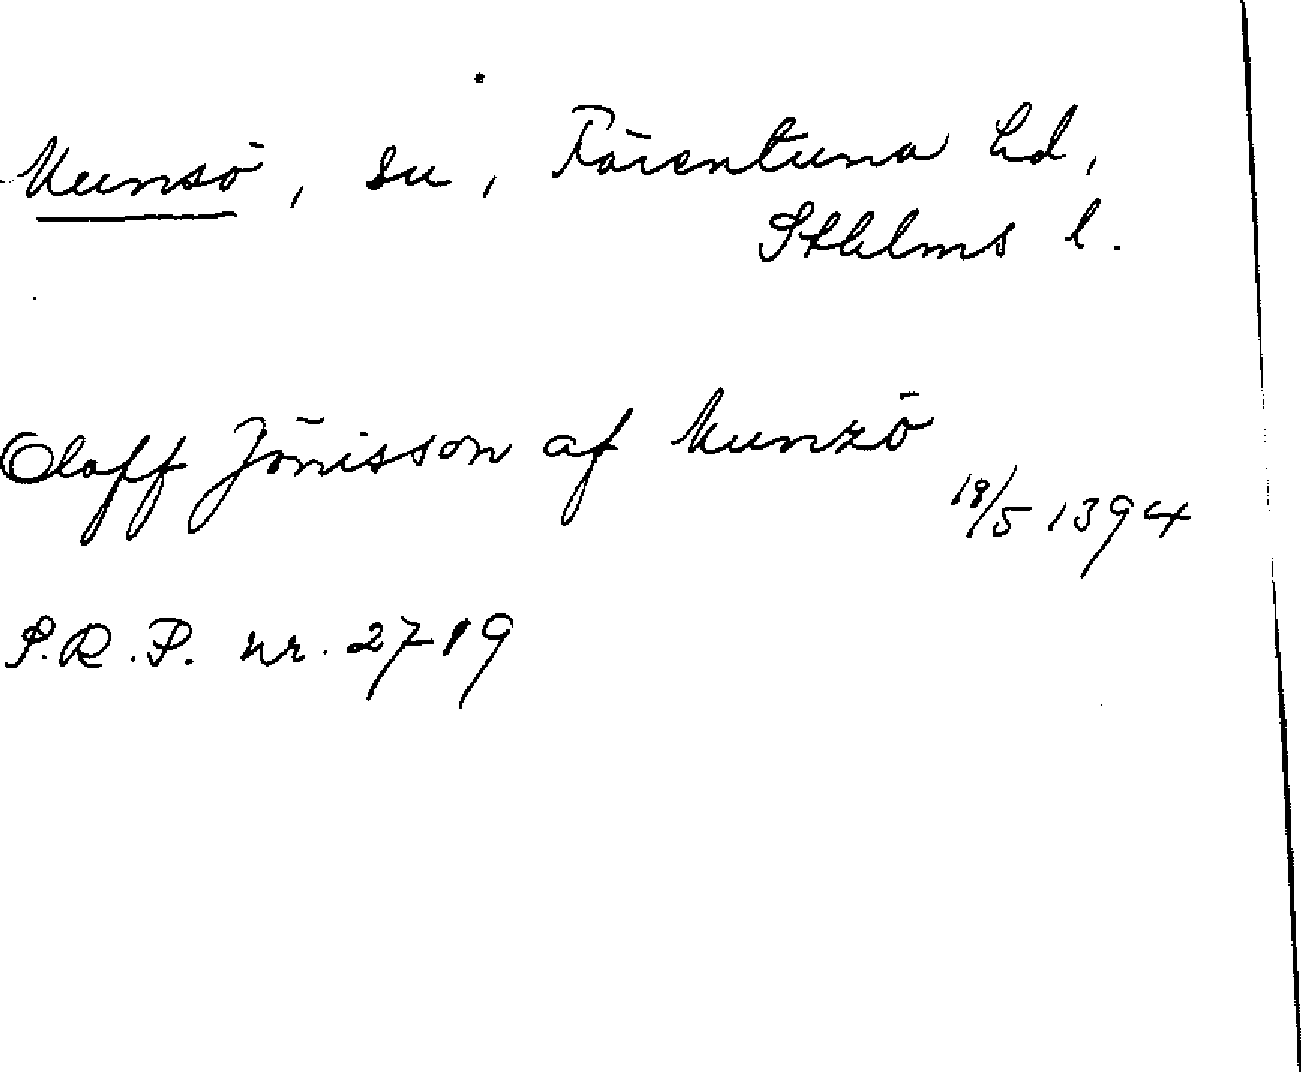 Munsö, sn, Färentuna hd,
Sthlms l.
Olaff Jönisson af Munzö
18/5 1394
S.R.P. nr. 2719